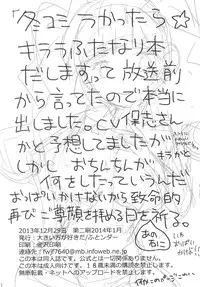 「冬コミうかったら☆
キララふたなり本
だします」って放送前
から言ってたので本当に
出しました。CV保志さん
かと予想してましたが
しかし おちんちんが
何をしたっていうんだ
おっぱいかけないから致命的
再びご尊顔を拝める日を祈る。
2013年12月29日 第二刷2014年1月
発行:大きい方が好きだ/ふとンダー
印刷:金沢印刷
連絡先:fwjf7640@mb.infoweb.ne.jp
この本は同人誌です。公式とは一切関係ありません。
この本は成人向けです。18歳未満の購読を禁止します。
無断転載・ネットへのアップロードを禁止します。